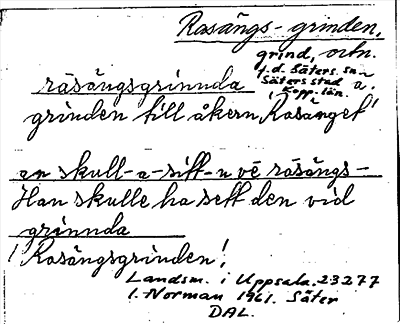 Rasängs-grinden,
grind, ortn.
f.d. Säters sn
Säters stad a.
Kopp. län.
räsängsgrinnda
grinden till åkern Rasänget'
an skull-a-sitt-n vē räsängs-
Han skulle ha sett den vid
grinnda
Rasängsgrinden!
Landsm. i Uppsala. 23277
I. Norman 1961. Säter
DAL.